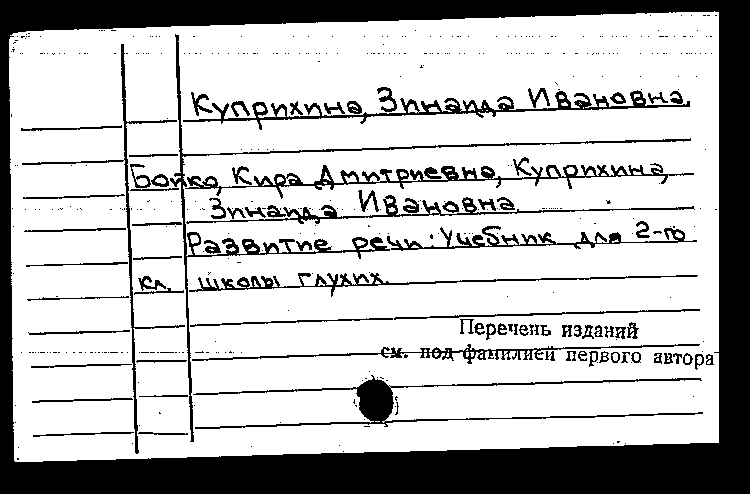 Куприхина, Зинаида Ивановна.
Бойко, Кира Дмитриевна, Куприхина,
Зинаида Ивановна
Развитие речи: Учебник для 2-го
кл. школы глухих.
Перечень изданий
см. под фамилией первого автора